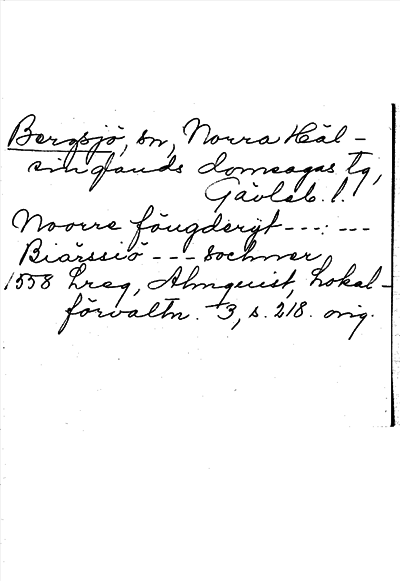 Bergsjö, sn, Norra Häl-
singlands domsagas tg,
Gävleb. l.
Noorre föugderijt ---:---
Biärssiö --- sochner
1558 Lreg, Almquist, Lokal-
förvaltn. 3, s. 218. orig.